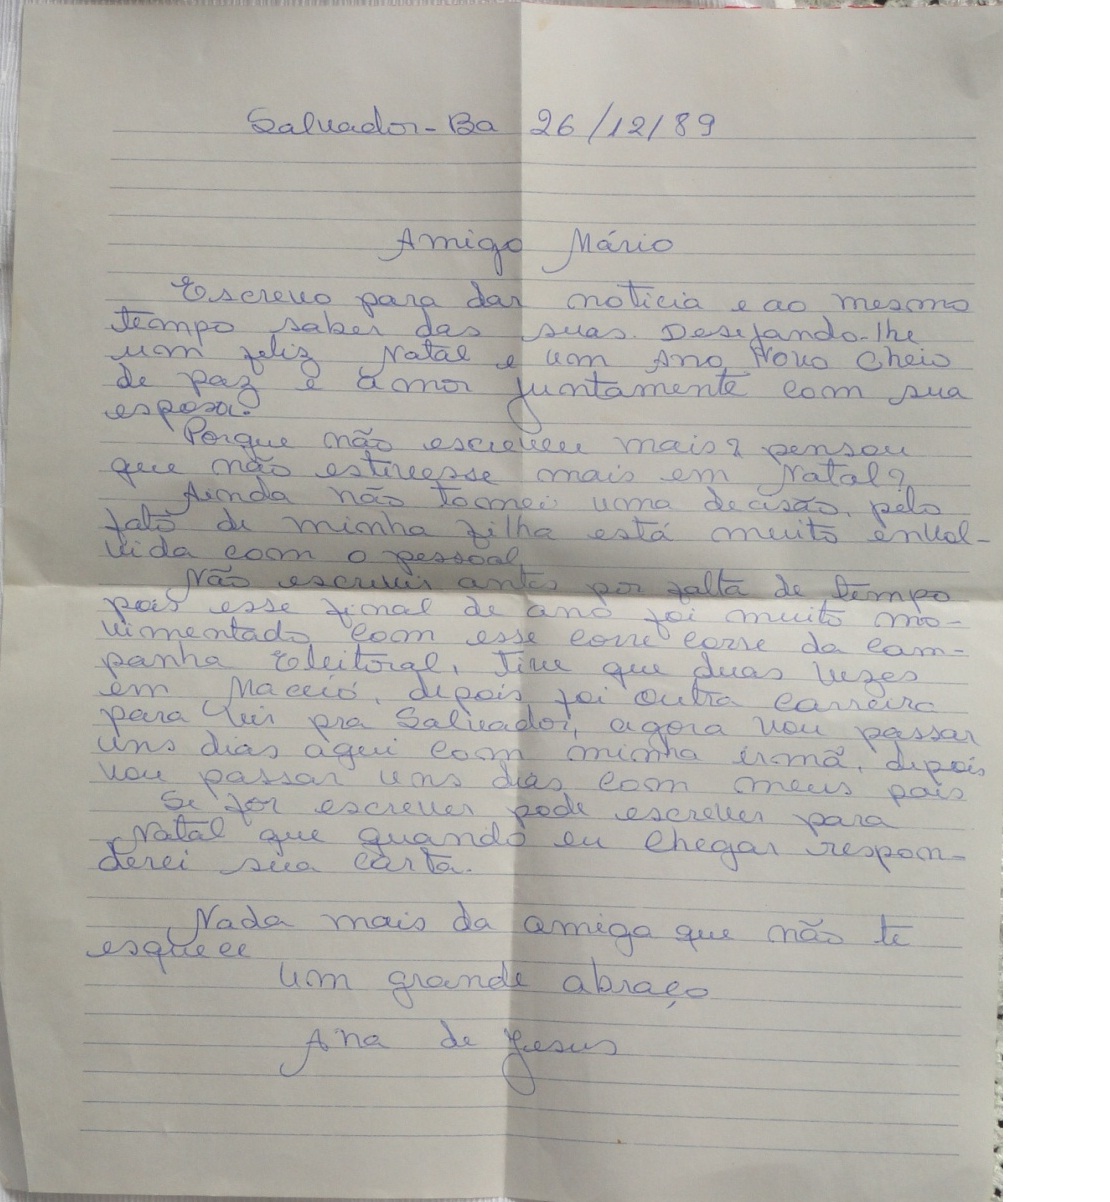 Salvador-Ba 26/12/89
Amigo Mário
Escrevo para dar noticia e ao mesmo
tempo saber das suas. Desejando-lhe
um feliz Natal e um Ano Novo cheio
de paz e amor juntamente com sua
esposa.
Porque não escreveu mais? pensou
que não estivesse mais em Natal?
Ainda não tomei uma decisão, pelo
fato de minha filha está muito envol-
vida com o pessoal
Não escrevir antes por falta de tempo
pois esse final de ano foi muito mo-
vimentado com esse corre corre da cam-
panha Eleitoral, Tive que duas vezes
em Maceió, depois foi outra carreira
para vir pra Salvador, agora vou passar
uns dias aqui com minha irmã, depois
vou passar uns dias com meus pais
Se for escrever pode escrever para
Natal que quando eu chegar respon-
derei sua carta.
Nada mais da amiga que não te
esquece
um grande abraço
Ana de Jesus